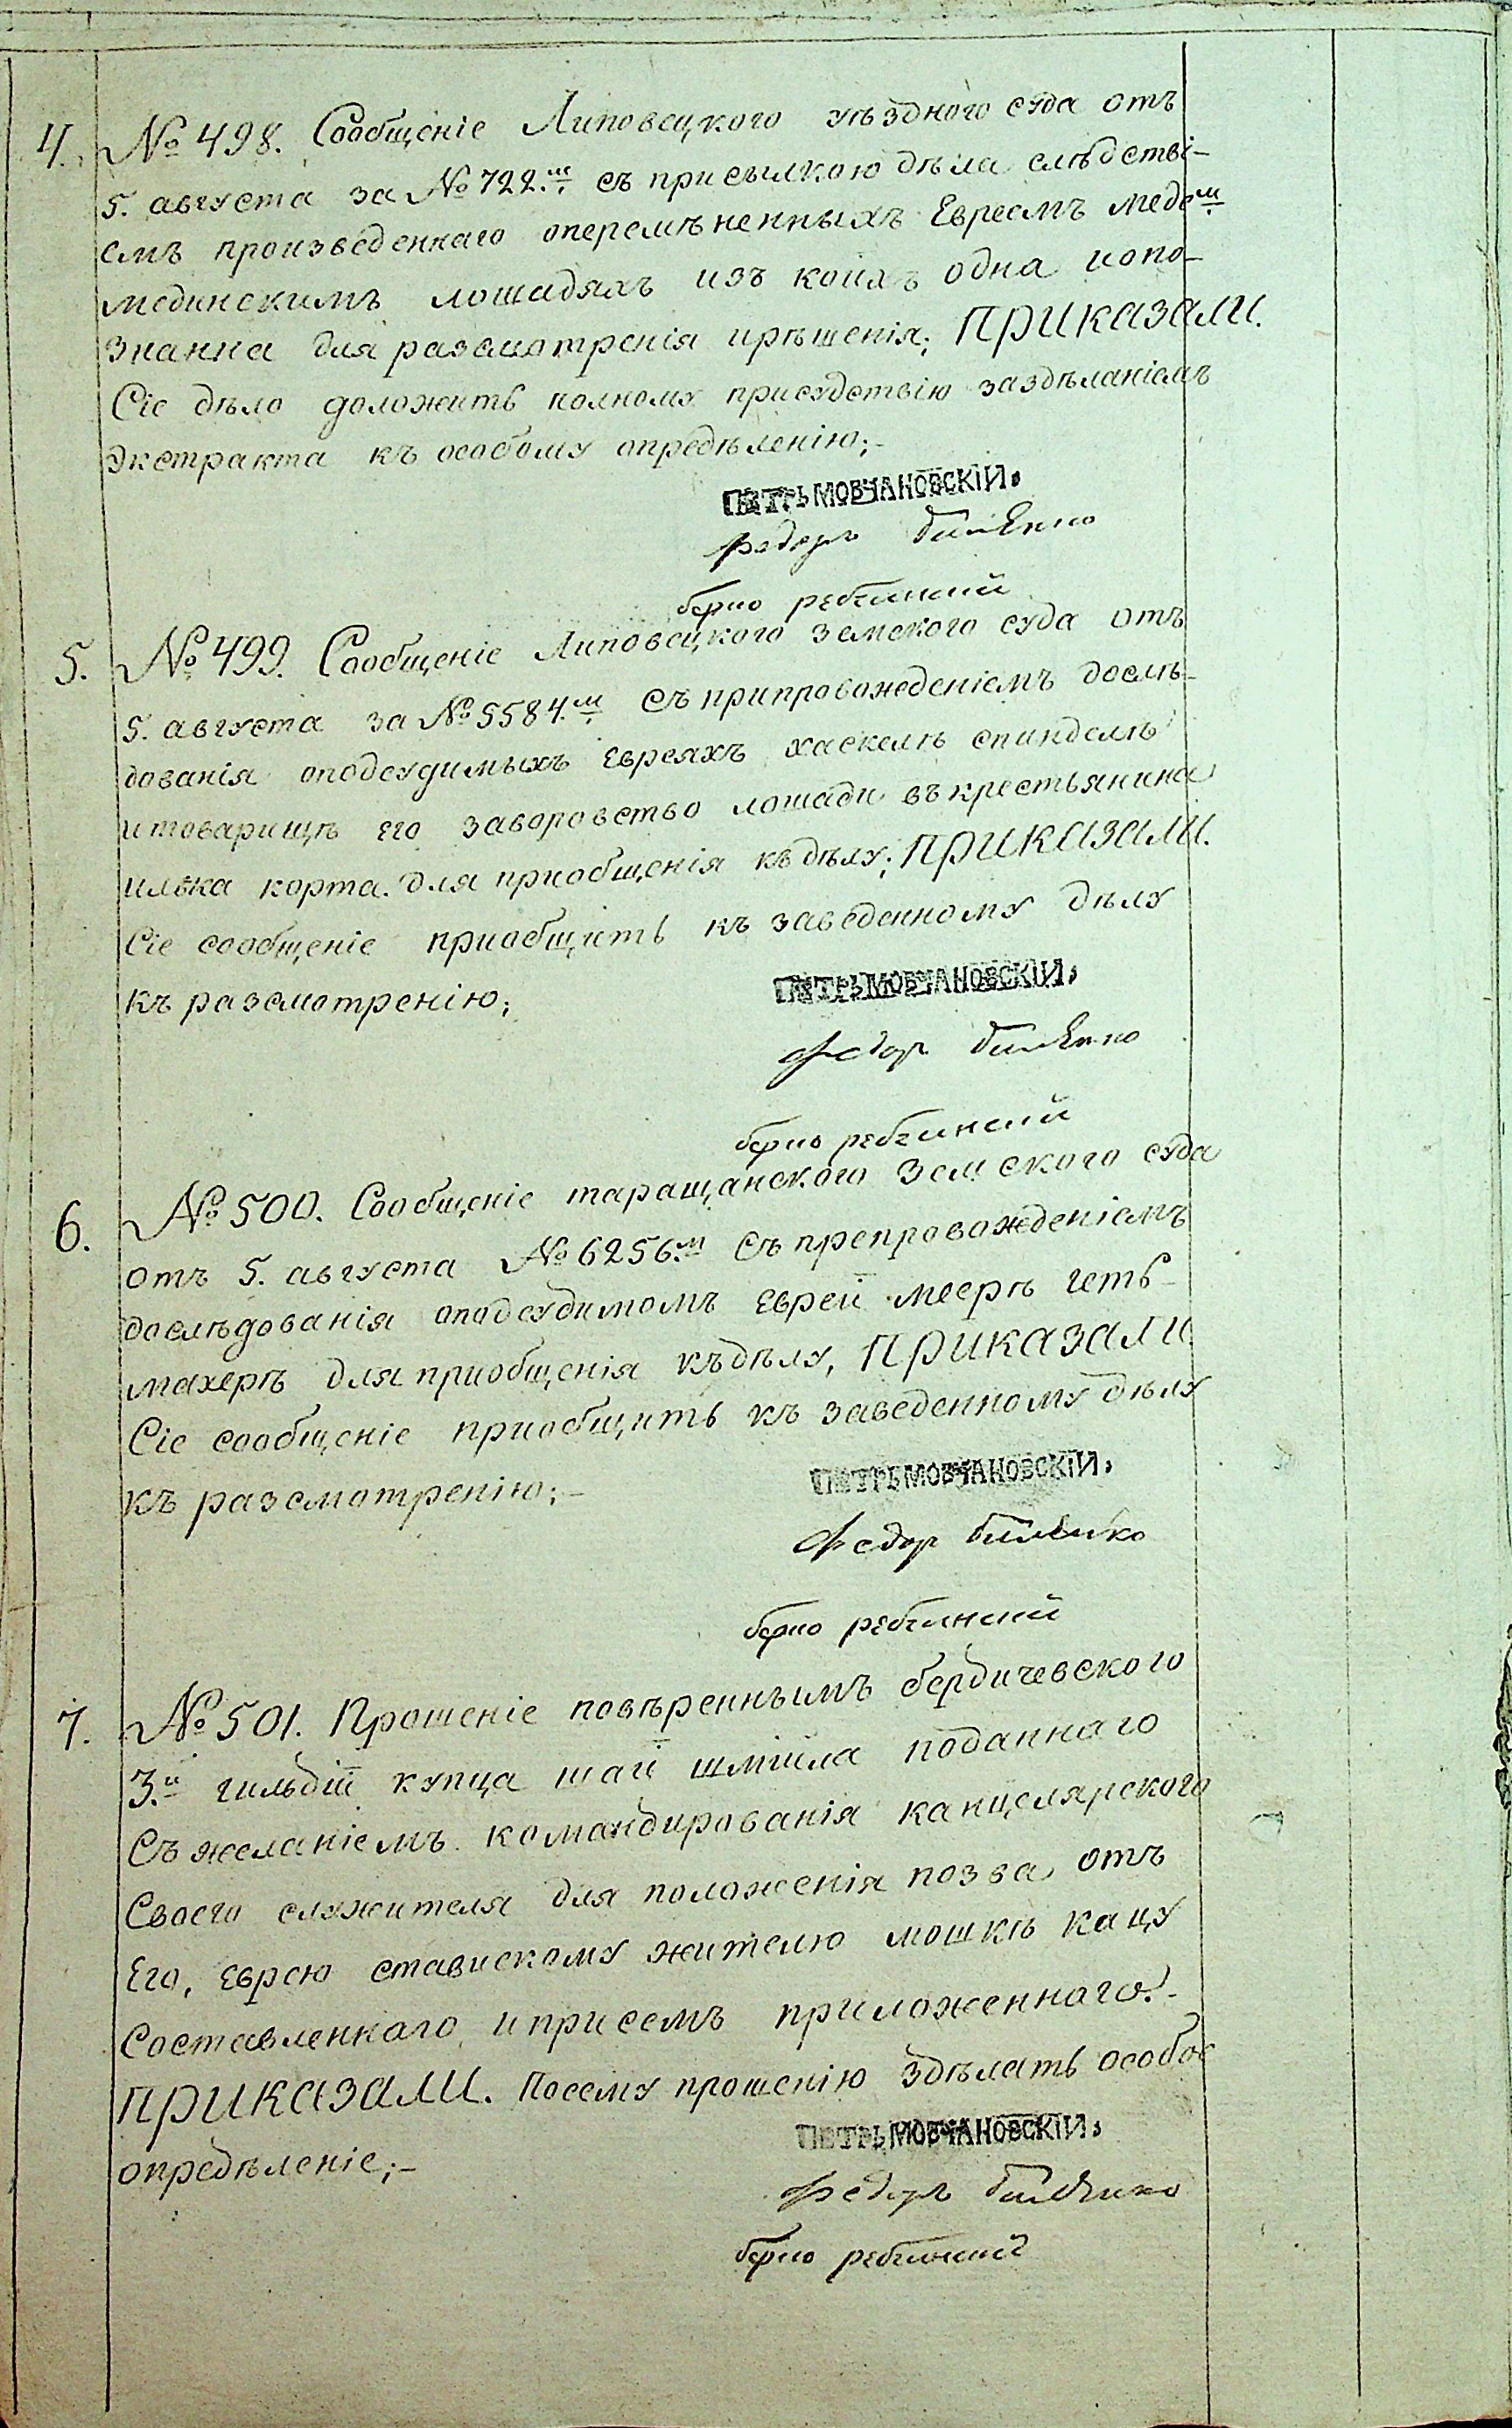 4. № 498. Сообщеніе Липовецкого уѣздного суда отъ
5. августа за № 722.м съ присылкою дѣла слѣдстві-
емъ произведеннаго оперемѣненныхъ Евреемъ
мединскимъ лошадяхъ изъ коихъ одна иопо-
знанна для разсмотренія ирѣшенія; ПРИКАЗАЛИ.
Сіе дѣло доложить полному присудствію заздѣланіемъ
Экстракта къ особому опредѣленію;-
ПЕТРЪ МОВЧАНОВСКІЙ,
федоръ
берко
5. № 499. Сообщеніе Липовецкого земского суда отъ
5. августа за № 5584.м съ припровожденіемъ дослѣ-
дованія оподсудимыхъ Евреяхъ хаскелѣ спинделѣ
итоварищѣ его заворовство лошади въ крестьянина
илька корта. для пріобщенія къ дѣлу; ПРИКАЗАЛИ.
Сіе сообщеніе приобщить къ заведенному дѣлу
къ разсмотренію;
ПЕТРЪ МОВЧАНОВСКІЙ,
Федор
берко
6. № 500. Сообщеніе таращанского земского суда
отъ 5. августа № 6256.м съ препровожденіемъ
дослѣдованія оподсудимомъ Еврей меерѣ геть-
махерѣ для приобщенія къ дѣлу, ПРИКАЗАЛИ
Сіе сообщеніе приобщить къ заведенному дѣлу
къ разсмотренію;-
ПЕТРЪ МОВЧАНОВСКІЙ,
Федор
берко
7. № 501. Прошеніе повѣреннымъ бердичевского
3.й гильдіи купца шаи шмііла поданнаго
Съ желаніемъ командированія канцелярского
Своего служителя для положенія позва отъ
Его, Еврею ставискому жителю мошкѣ кацу
Составленнаго и присемъ приложеннаго.-
ПРИКАЗАЛИ. Посему прошенію здѣлать особое
опредѣленіе;-
ПЕТРЪ МОВЧАНОВСКІЙ,
Федоръ
берко